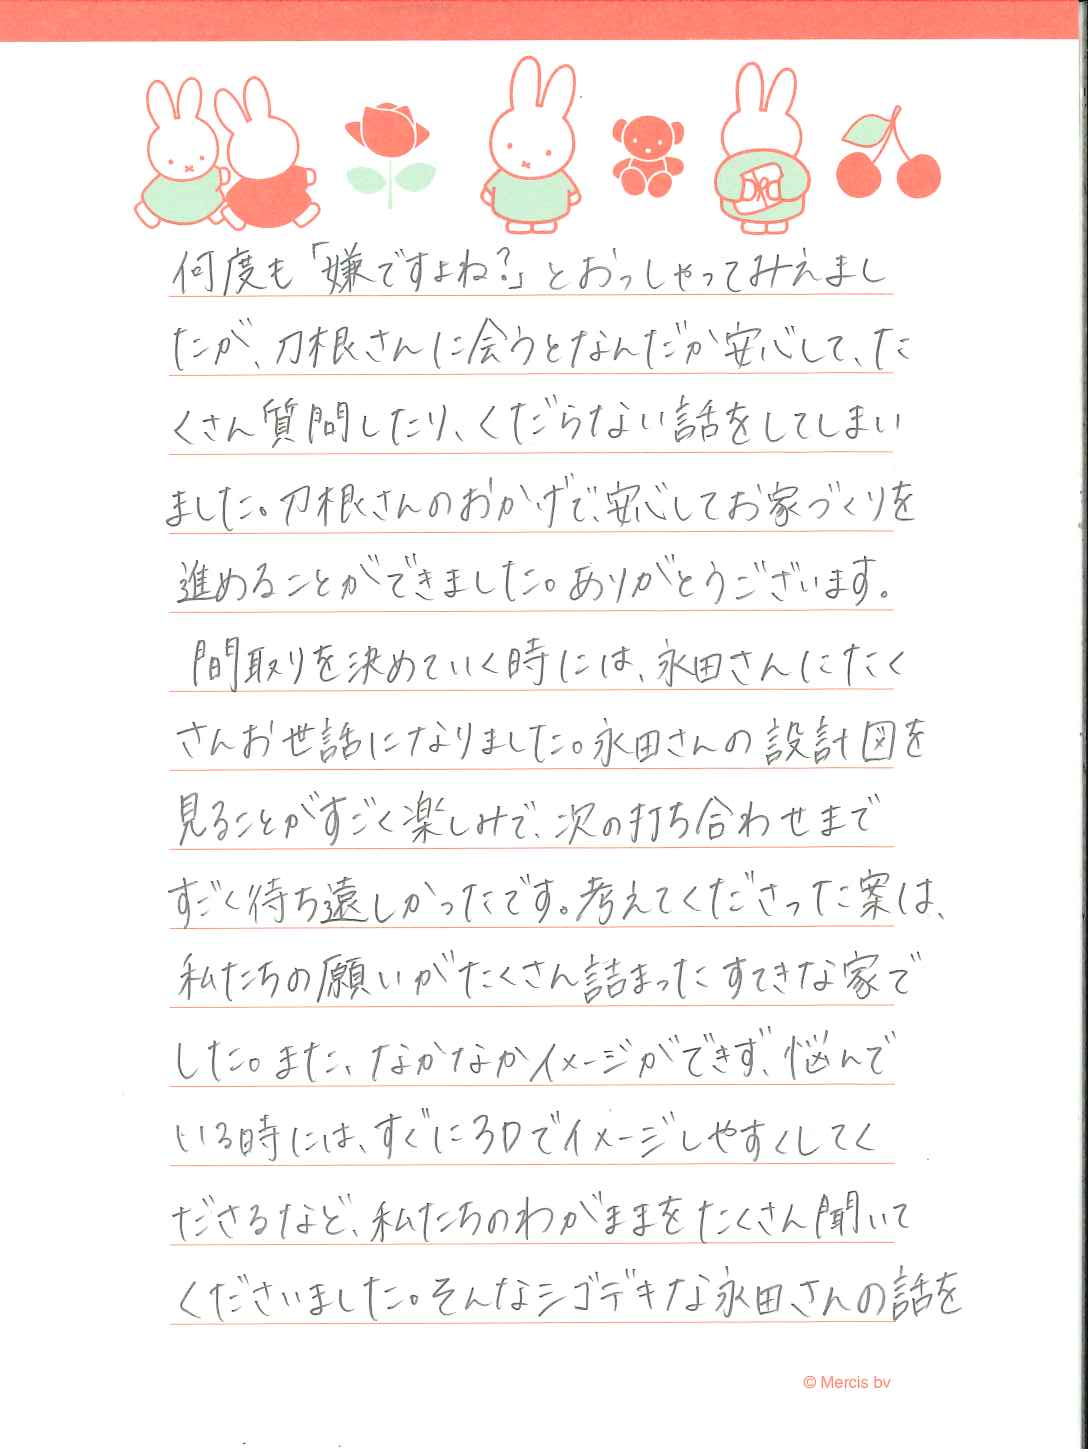 何度も「嫌ですよね?」とおっしゃってみえまし
たが、刀根さんに会うとなんだか安心して、た
くさん質問したり、くだらない話をしてしまい
ました。刀根さんのおかげで、安心してお家づくりを
進めることができました。ありがとうございます。
間取りを決めていく時には、永田さんにたく
さんお世話になりました。永田さんの設計図を
見ることがすごく楽しみで、次の打ち合わせまで
すごく待ち遠しかったです。考えてくださった案は、
私たちの願いがたくさん詰まったすてきな家で
した。また、なかなかイメージができず、悩んで
いる時には、すぐに3Dでイメージしやすくしてく
ださるなど、私たちのわがままをたくさん聞いて
くださいました。そんなシゴデキな永田さんの話を
© Mercis bv